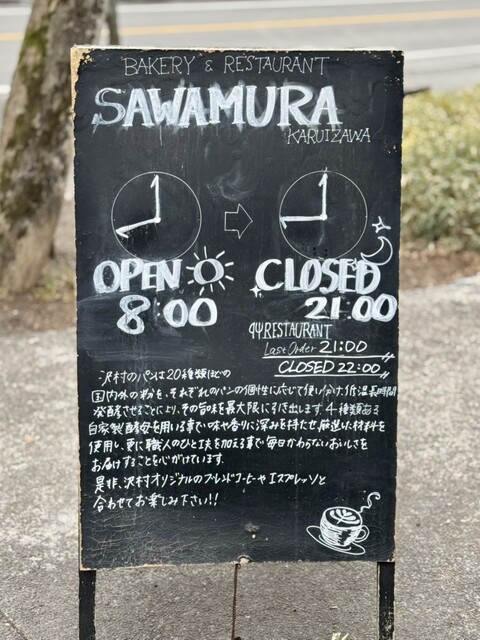 BAKERY & RESTAURANT
SAWAMURA
KARUIZAWA
OPEN
8:00
CLOSED
21:00
RESTAURANT
Last Order 21:00
CLOSED 22:00
沢村のパンは20種類ほどの
国内外の粉を、それぞれのパンの個性に応じて使い分け、低温長時間
発酵させることにより、その旨味を最大限に引き出します。4種類ある
自家製酵母を用いる事で味や香りに深みを持たせ、厳選した材料を
使用し、更に職人のひと工夫を加える事で毎日かわらないおいしさを
お届けすることを心がけています。
是非、沢村オリジナルのブレンドコーヒーやエスプレッソと
合わせてお楽しみ下さい!!